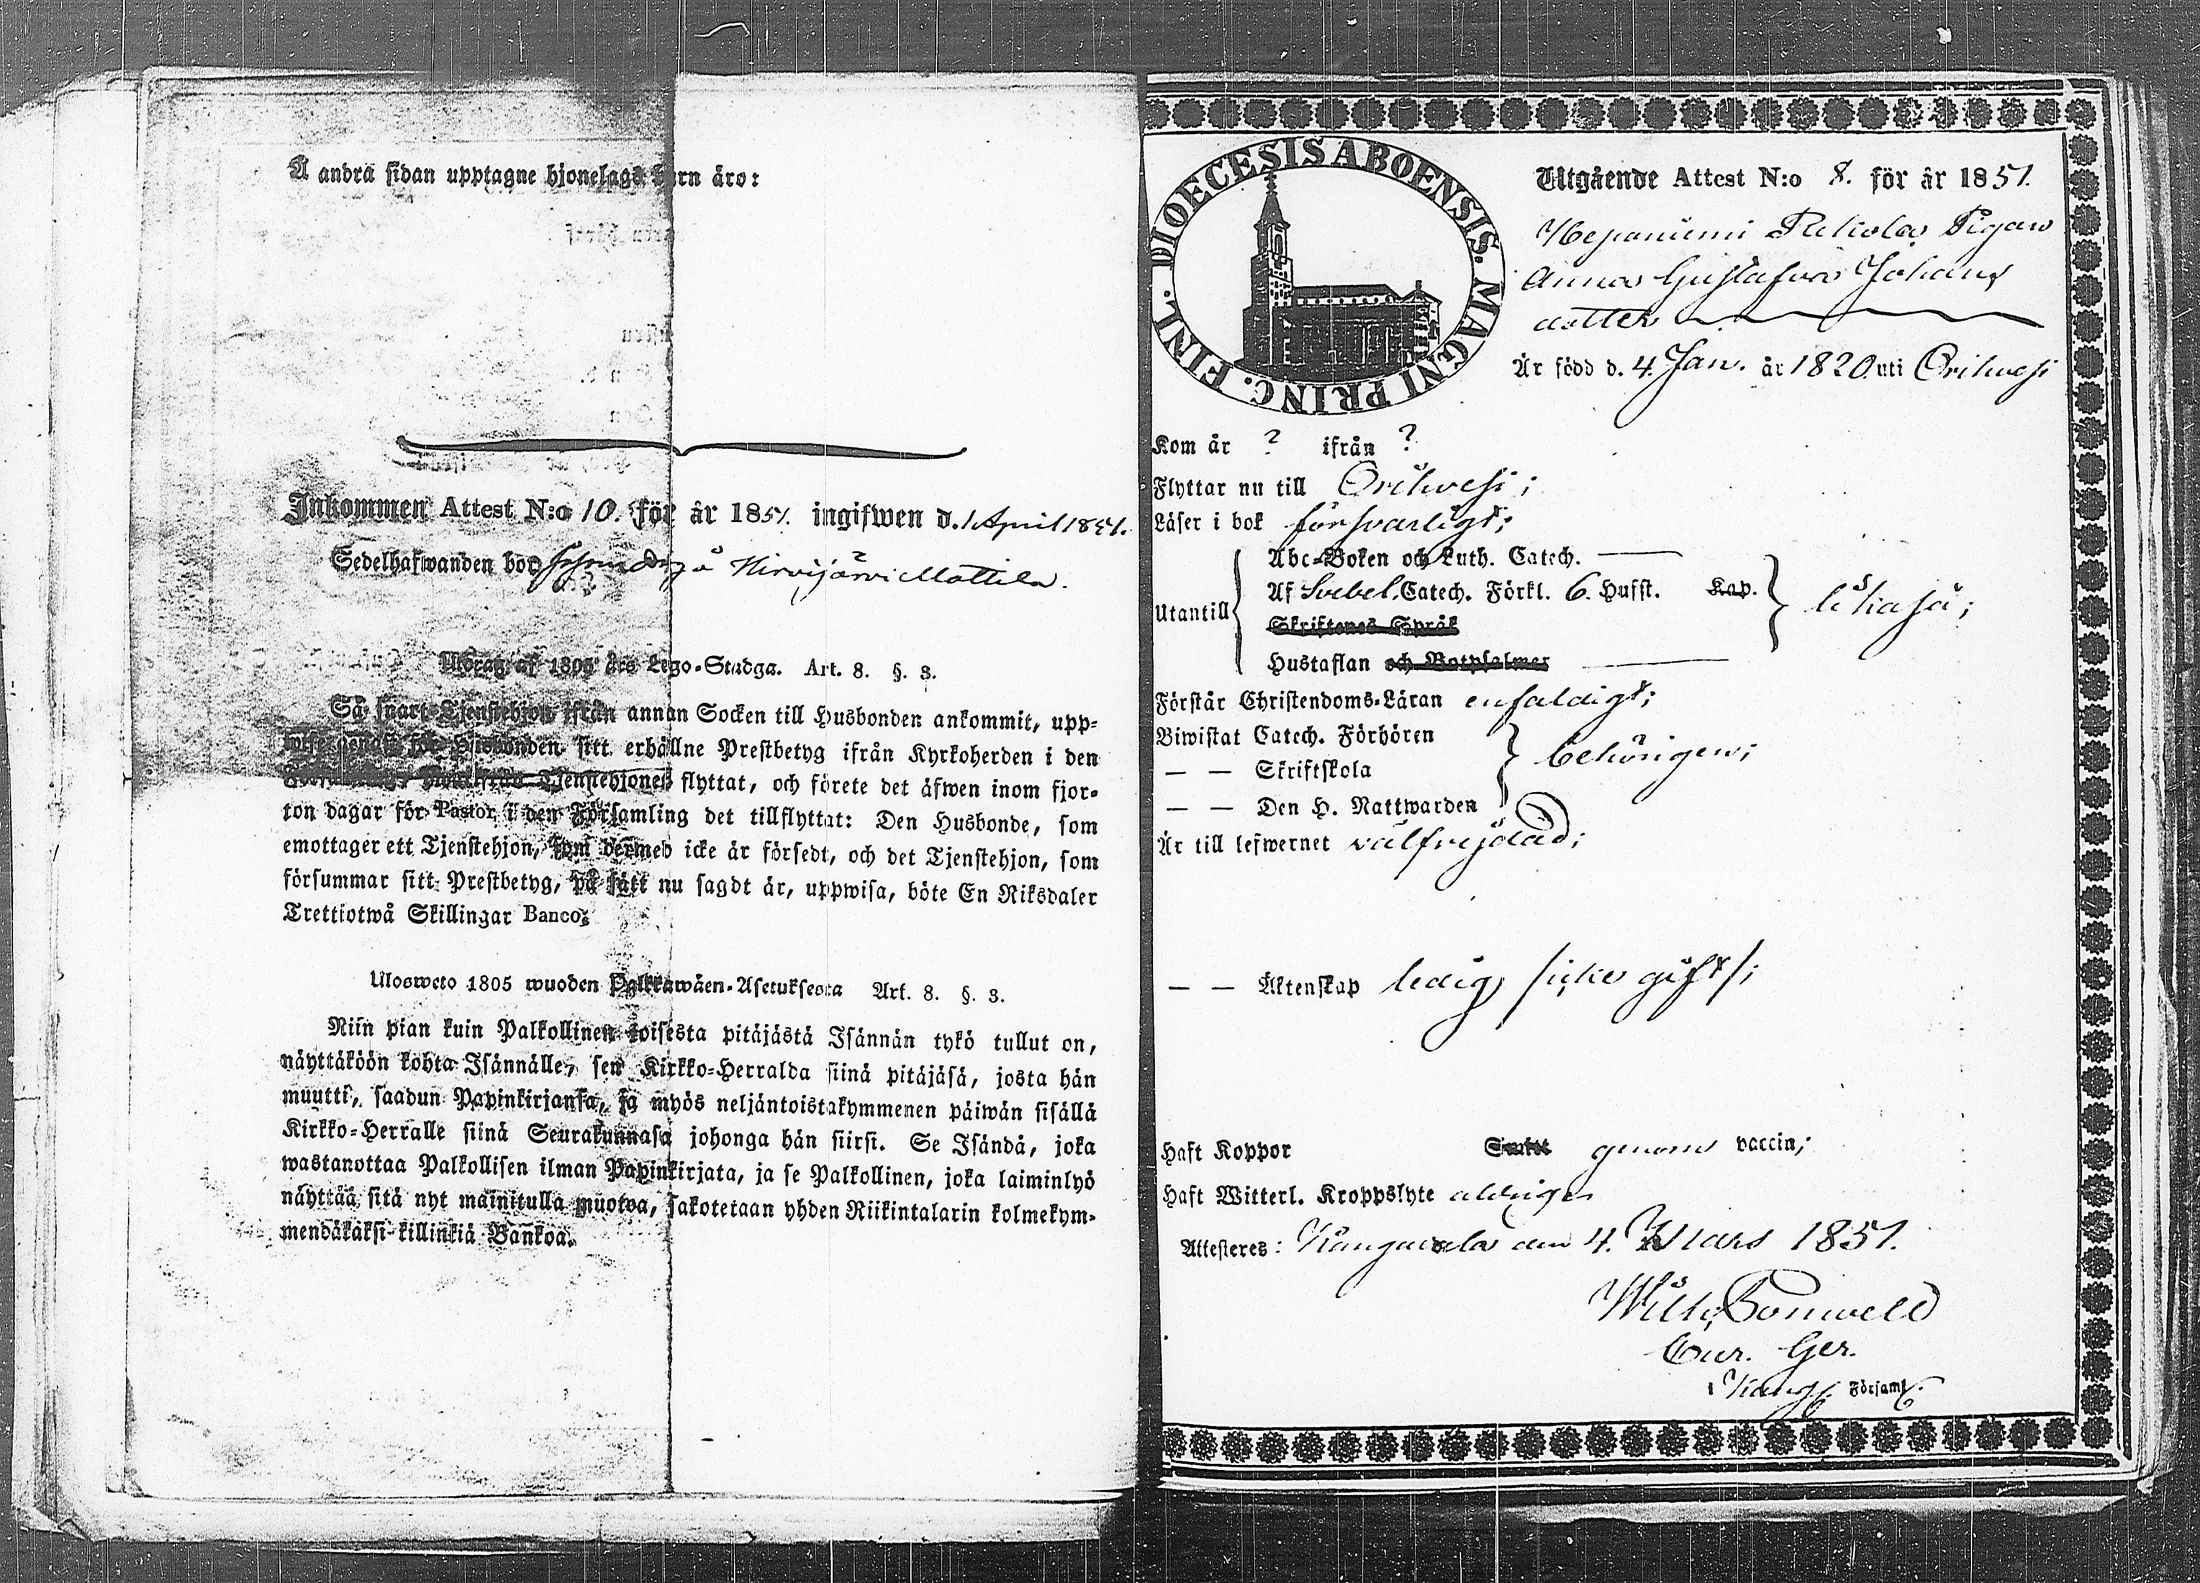 Å andra sidan upptagne hjonelags barn äro:
Inkommen Attest N:o 10. för år 1851. ingifwen d. 1 April 1851.
Sedelhafwanden bor å Hirvijärvi Mattila.
Utdrag af 1805 års Lego-Stadga. Art. 8. §. 3.
Så snart Tjenstehjon ifrån annan Socken till Husbonden ankommit, upp-
wise genast för Husbonden sitt erhållne Prestbetyg ifrån Kyrkoherden i den
Tjenstehjonet flyttat, och förete det äfwen inom fjor-
ton dagar för Pastor i den Församling det tillflyttat: Den Husbonde, som
emottager ett Tjenstehjon, som dermed icke är försedt, och det Tjenstehjon, som
försummar sitt Prestbetyg, på sätt nu sagdt är, uppwisa, böte En Riksdaler
Trettiotwå Skillingar Banco.
Uloswetо 1805 wuoden Palkkawäen-Asetuksesta Art. 8. §. 3.
Niin pian kuin Palkollinen toisesta pitäjästä Isännän tykö tullut on,
näyttäköön kohta Isännälle, sen Kirkko-Herralda siinä pitäjäsä, josta hän
muutti, saadun Papinkirjansa, ja myös neljäntoistakymmenen päiwän sisällä
Kirkko-Herralle siinä Seurakunnasa johonga hän siirsi. Se Isändä, joka
wastanottaa Palkollisen ilman Papinkirjata, ja se Palkollinen, joka laiminlyö
näyttää sitä nyt mainitulla muotoa, sakotetaan yhden Riikintalarin kolmekym-
mendäkaksi killinkiä Bankoa.
DIOECESIS ABOENSIS. MAGNI PRINC. FINL.
Utgående Attest N:o 8. för år 1851.
Pigan
Anna Gustafva Johans
dotter
Är född d. 4. Jan. år 1820. uti Orihvesi
Kom år ? ifrån ?
Flyttar nu till Orihvesi;
Läser i bok försvarligt;
Utantill
Abc-Boken och Luth. Catech.
Af Svebel. Catech. Förkl. 6. Hufst. Kap.
Skriftenes Språk
Hustaflan och Botpsalmer
likaså;
Förstår Christendoms-Läran enfaldigt;
Biwistat Catech. Förhören
— — Skriftskola
— — Den H. Nattwarden
behörigen;
Är till lefwernet välfrejdad;
— — Äktenskap ledig, /icke gift/;
Haft Koppor genom vaccin;
Haft Witterl. Kroppslyte aldrig
Attesteres: Kangasala den 4. Mars 1851.
Wilh. Bonwelld
Cur. Ger.
i Kang. Församl.